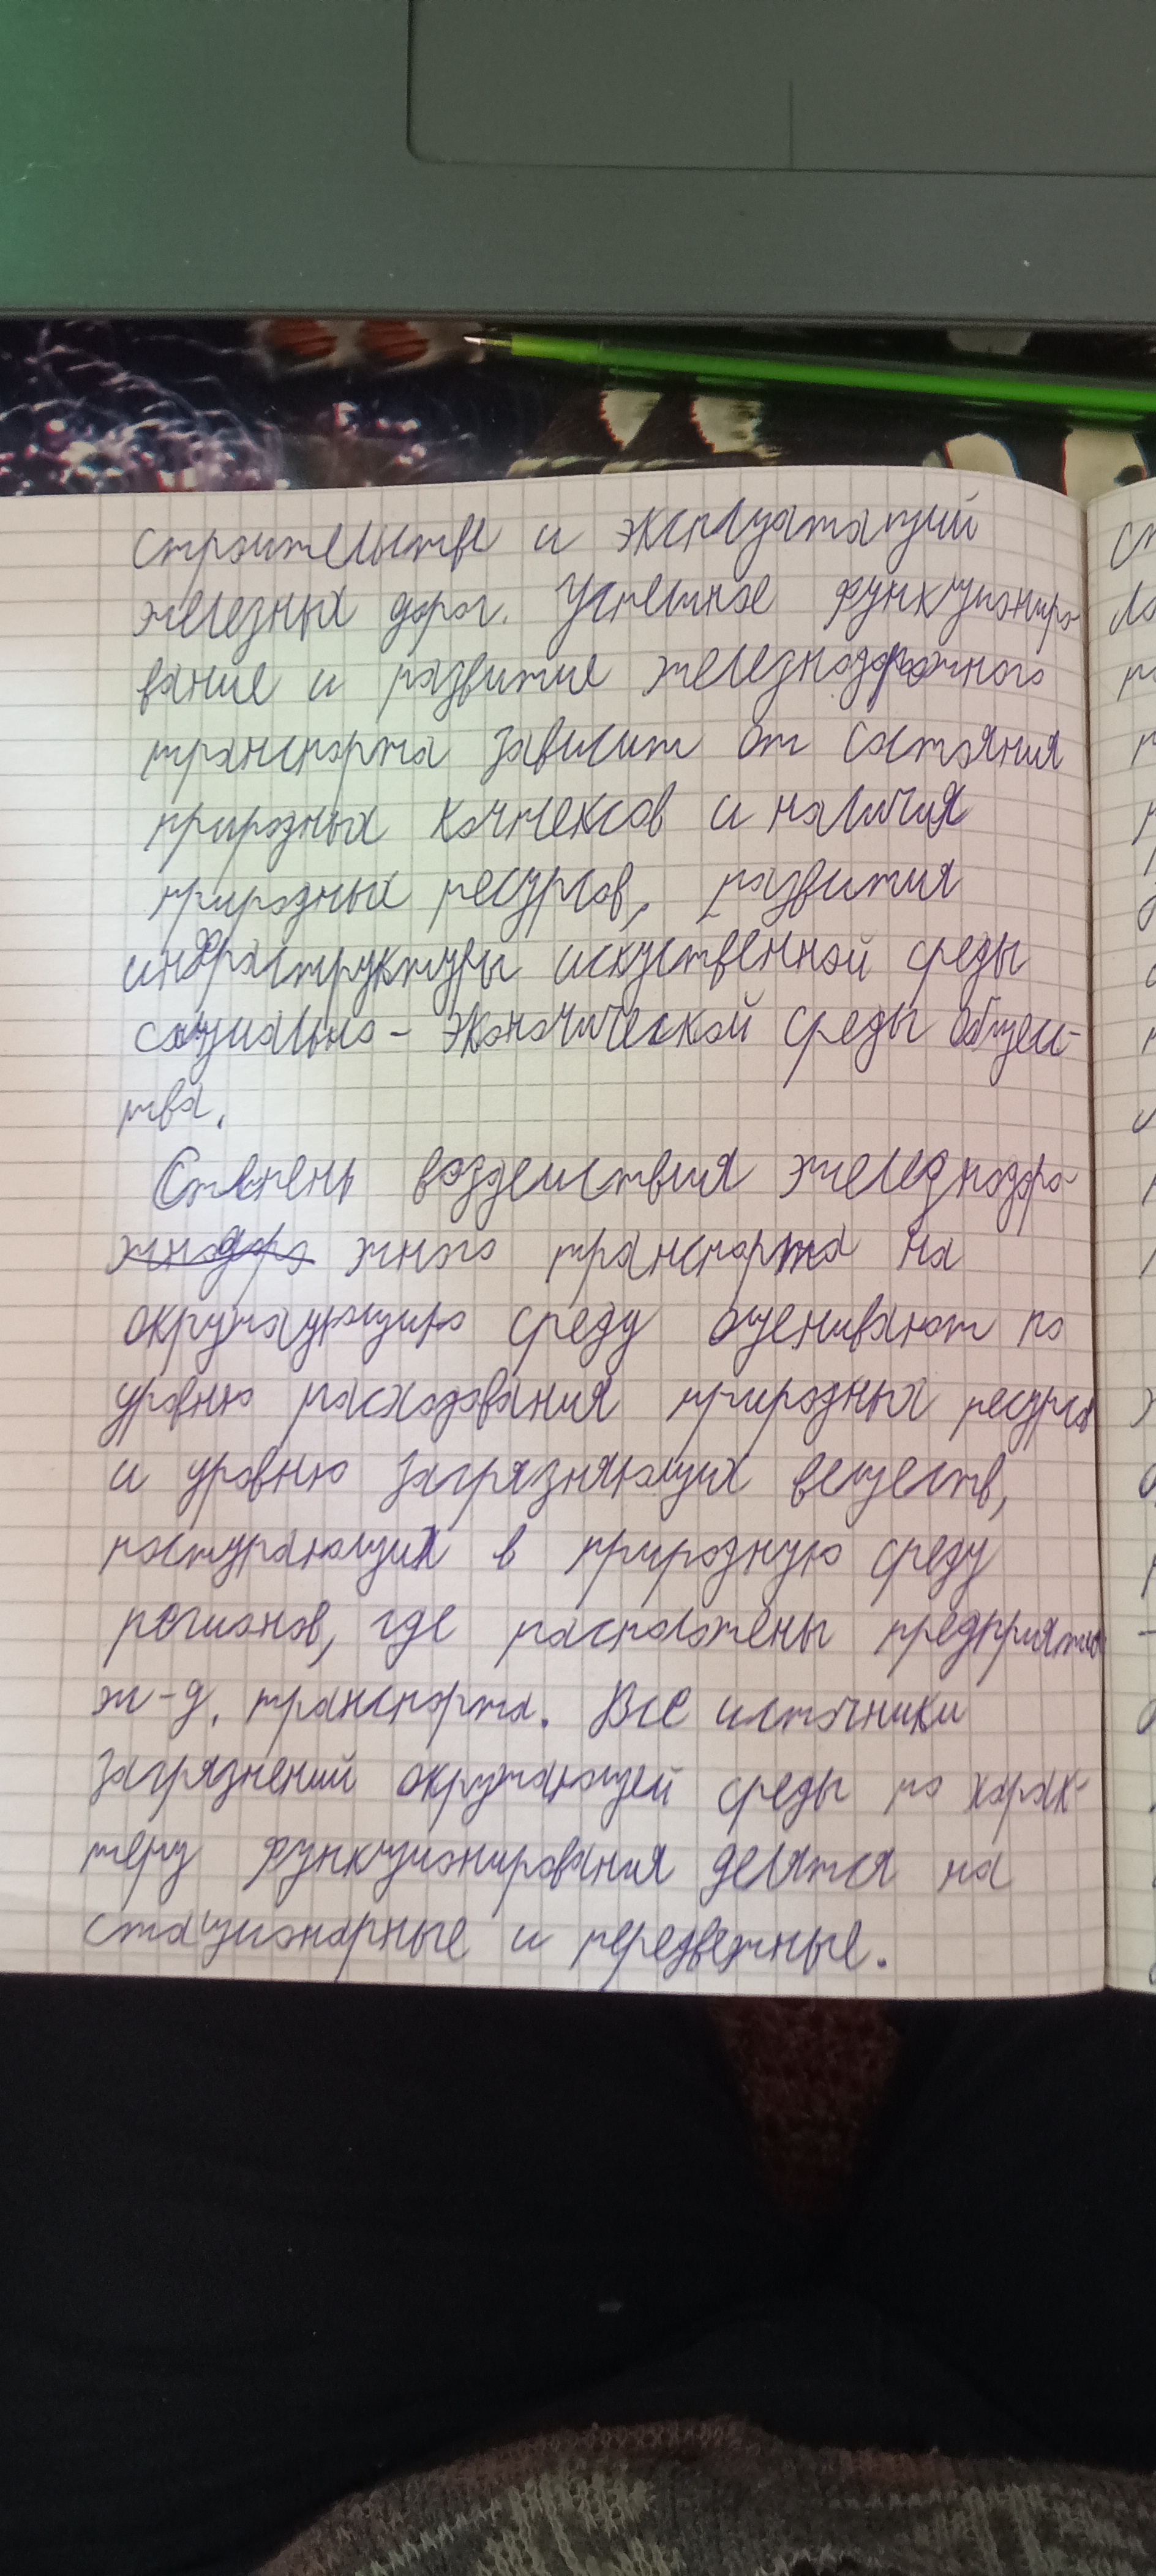 строительстве и эксплуатаций
железных дорог. Успешное функциониро
вание и развитие железнодорожного
транспорта зависит от состояния
природных комплексов и наличия
природных ресурсов, развития
инфраструктуры искуственной среды
социально-экономической среды общес-
тва.
Степень воздействия железнодоро-
жного транспорта на
окружающую среду оценивают по
уровню расходования природных ресурсов
и уровню загрязняющих веществ,
поступающих в природную среду
регионов, где расположены предприятия
ж-д. транспорта. Все источники
загрязнений окружающей среды по харак-
теру функционирования делятся на
стационарные и передвежные.